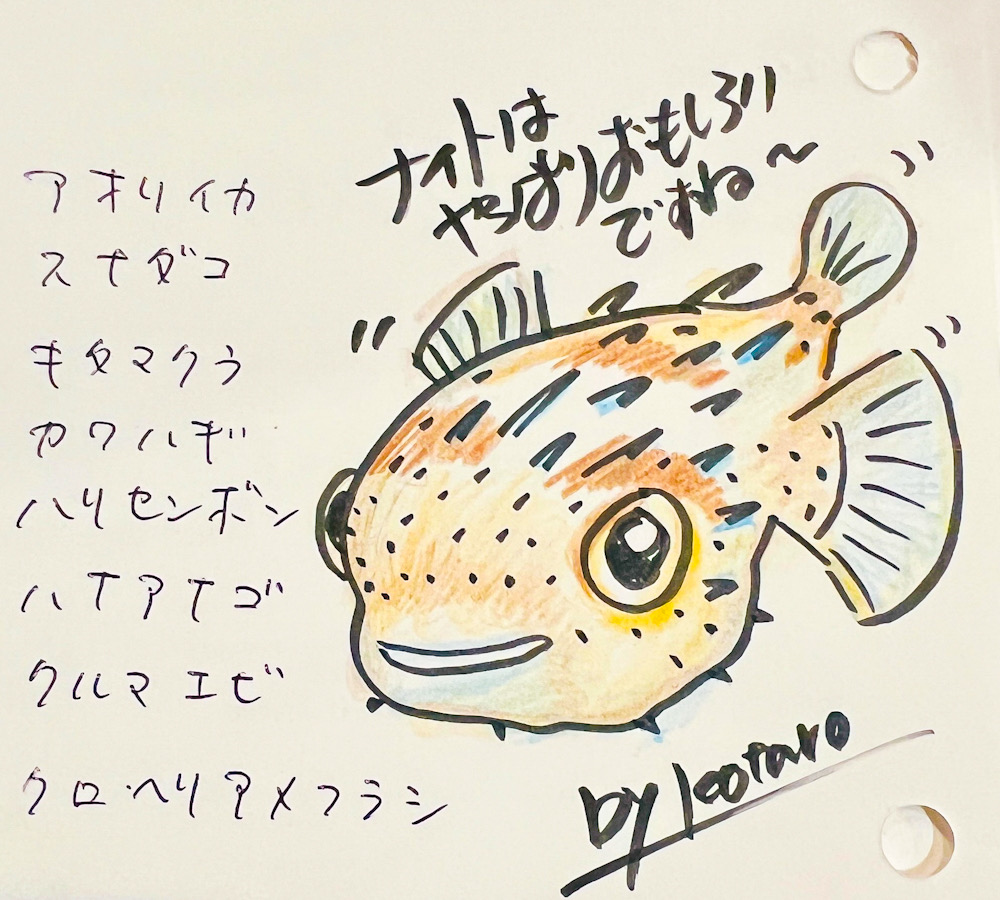 ナイトは
やっぱりおもしろい
ですね〜
アオリイカ
スナダコ
キタマクラ
カワハギ
ハリセンボン
ハナアナゴ
クルマエビ
クロヘリアメフラシ
by kotaro